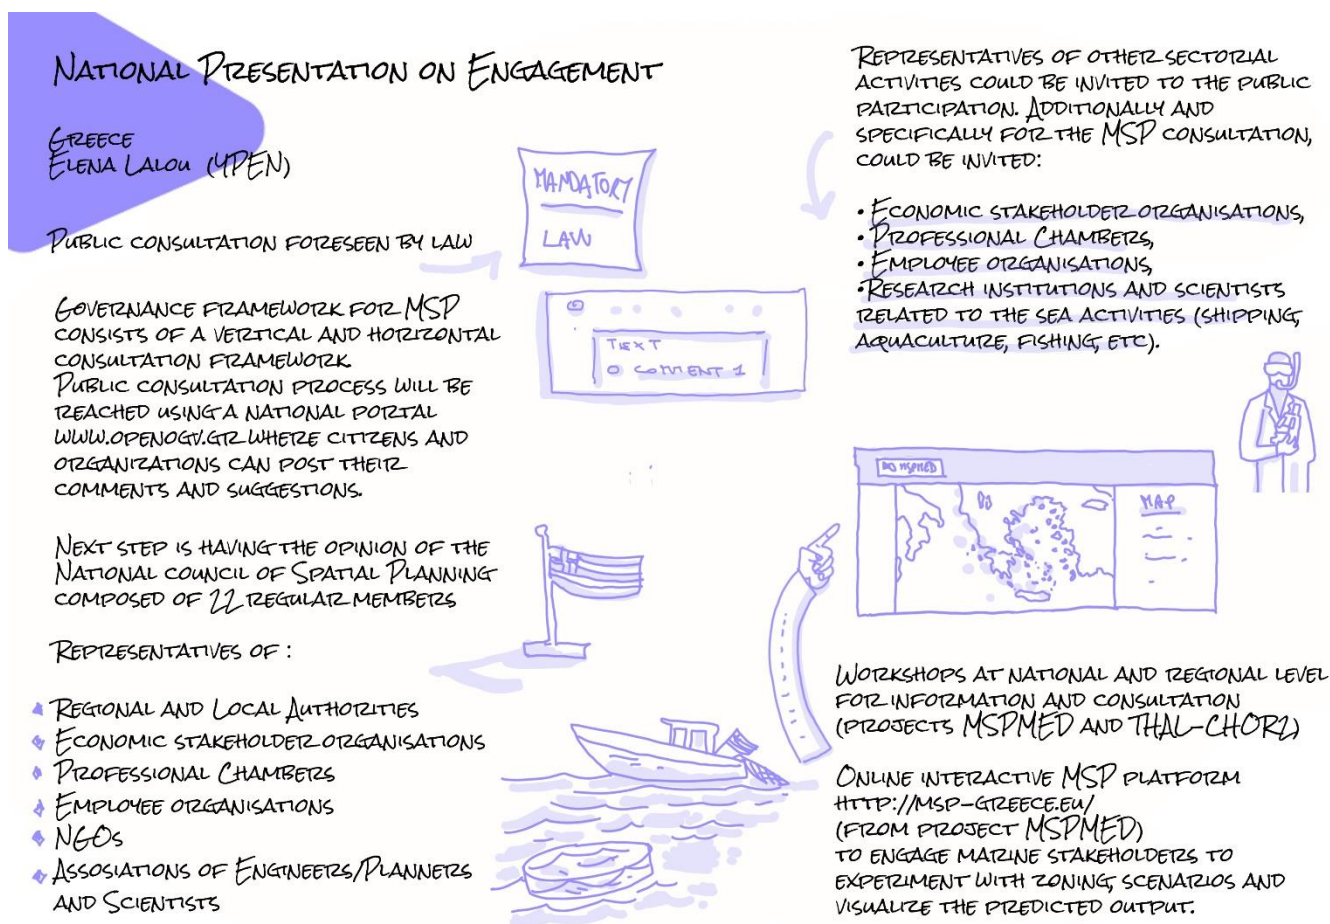 National Presentation on Engagement
Greece
Elena Lalou (YPEN)
Public consultation foreseen by law
MANDATORY
LAW
Governance framework for MSP
consists of a vertical and horizontal
consultation framework
Public consultation process will be
reached using a national portal
www.openogv.gr where citizens and
organizations can post their
comments and suggestions.
TEXT
COMMENT 1
Next step is having the opinion of the
National council of Spatial Planning
composed of 22 regular members
Representatives of :
Regional and Local Authorities
Economic stakeholder organisations
Professional Chambers
Employee organisations
NGOs
Assosiations of Engineers/Planners
and Scientists
Representatives of other sectorial
activities could be invited to the public
participation. Additionally and
specifically for the MSP consultation,
could be invited:
• Economic stakeholder organisations,
• Professional Chambers,
• Employee organisations,
• Research institutions and scientists
related to the sea activities (shipping,
aquaculture, fishing, etc).
MSPMED
MAP
Workshops at national and regional level
for information and consultation
(projects MSPMED and THAL-CHOR2)
Online interactive MSP platform
http://msp-greece.eu/
(from project MSPMED)
to engage marine stakeholders to
experiment with zoning, scenarios and
visualize the predicted output.